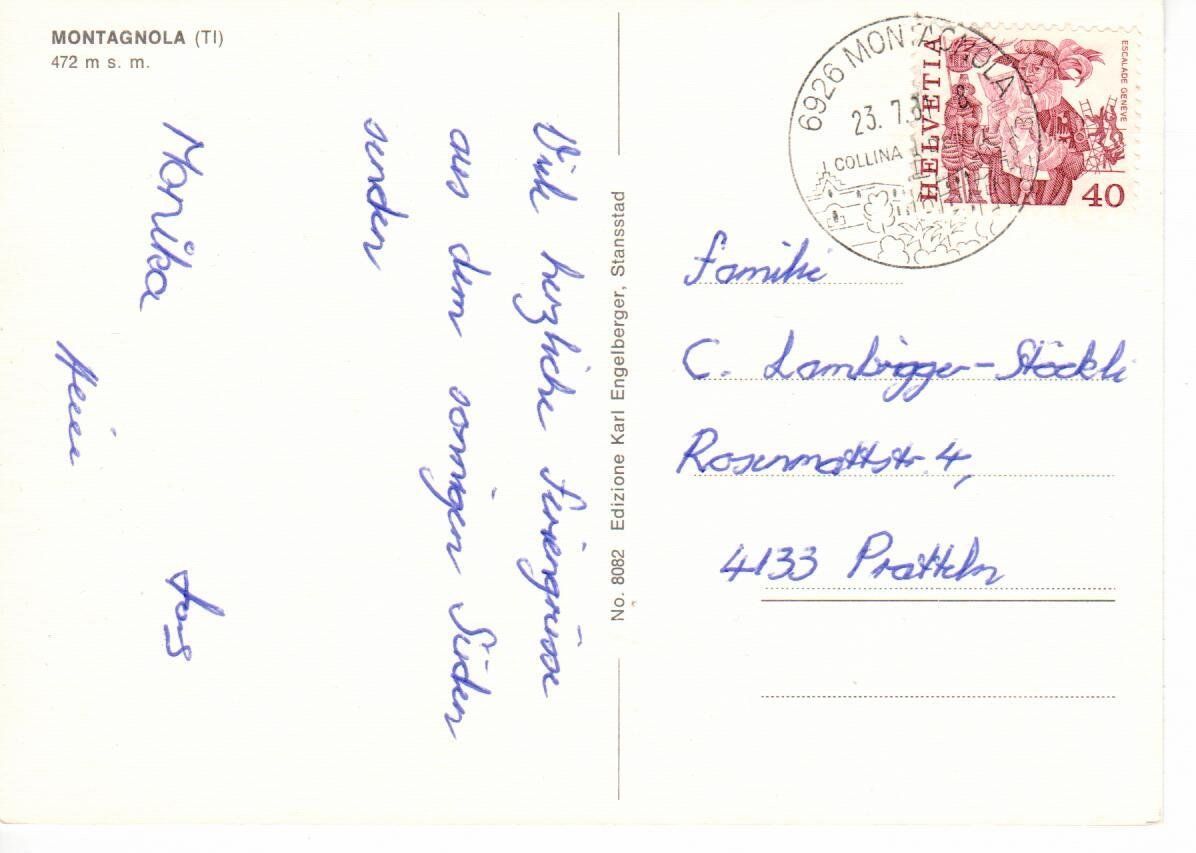 MONTAGNOLA (TI)
472 m s. m.
Viele herzliche Feriengrüsse
aus dem sonnigen Süden
senden
Monika
Heini
No. 8082 Edizione Karl Engelberger, Stansstad
6926 MONTAGNOLA
23. 7.8
COLLINA
HELVETIA
ESCALADE GENÈVE
40
Familie
C. Lambrigger-Stöckli
Rosenmattstr. 4,
4133 Pratteln